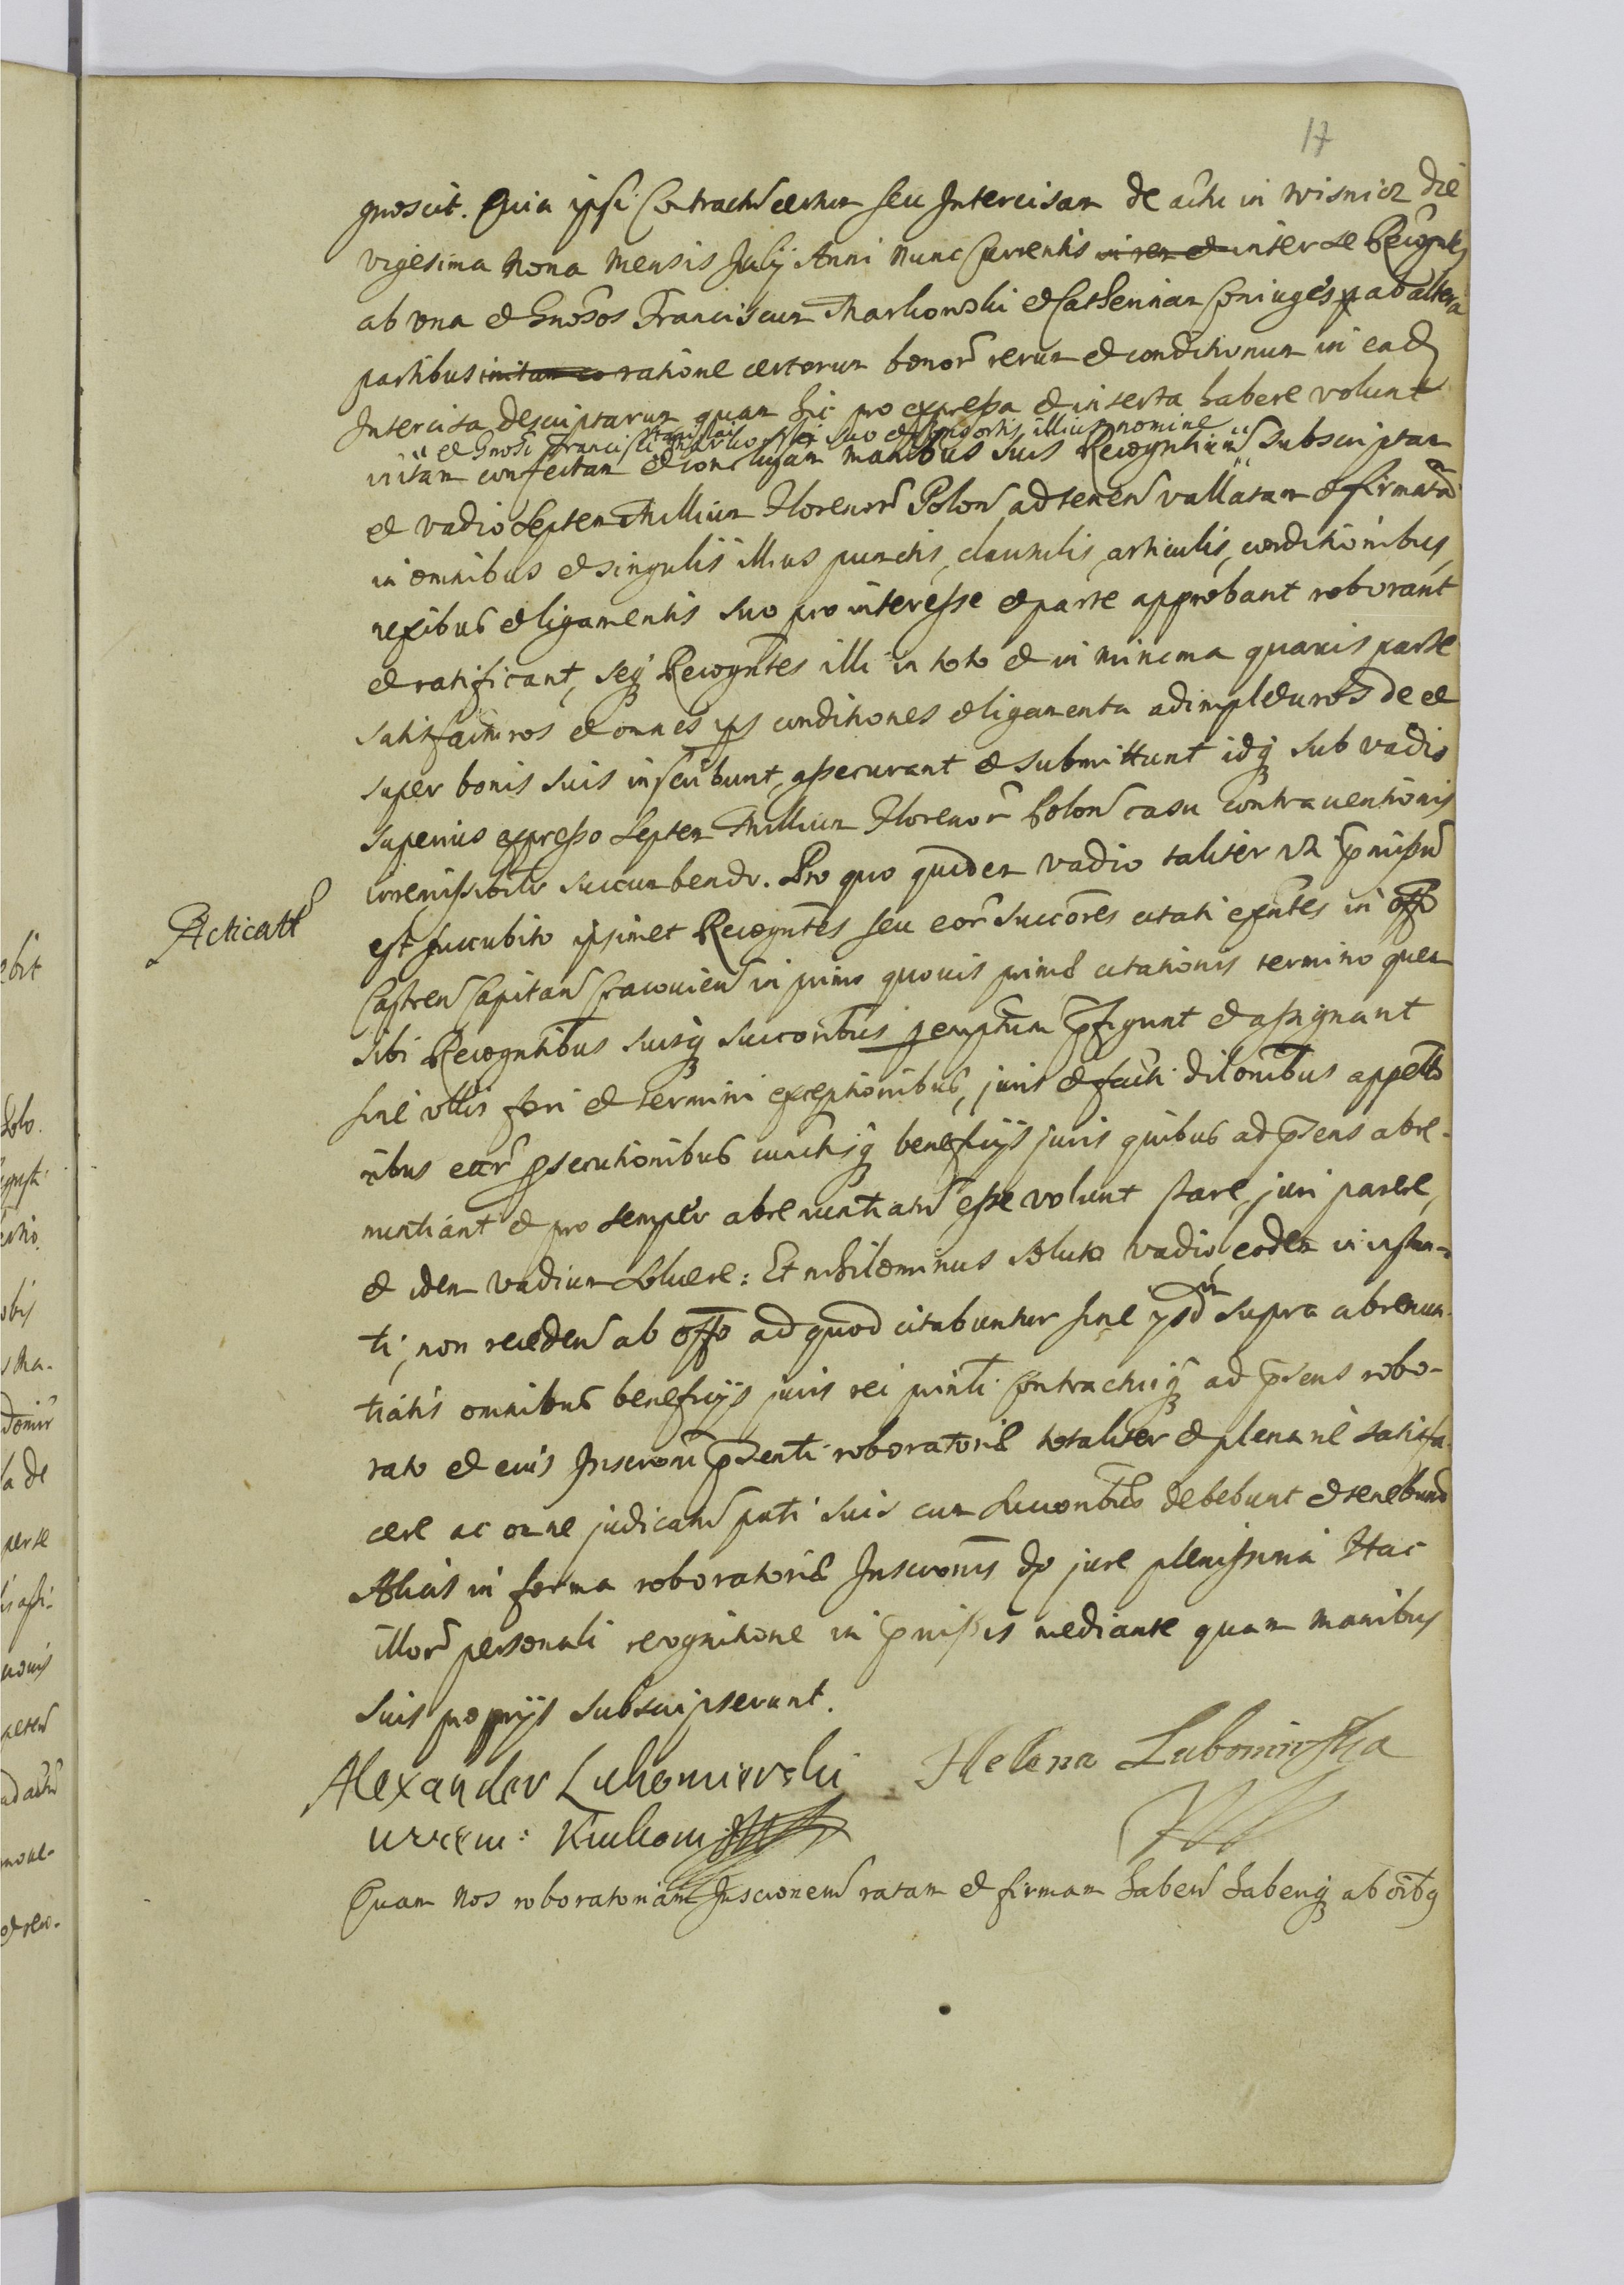 17
gnoscit. Quia ipsi Contractū certum seu Intercisam de actu in Wisnicz die
vigesima Nona Mensis Julij Anni Nunc Currentis inter se Recogntes
ab vna et Gnosos Franciscum Markowski et Catherinam Coniuges ab altera
partibus ratione certorum bonor rerum et conditionum in ead
Intercisa descriptarum quam hic pro expressa et inserta habere volunt
et Gnosi Francisci Markowski suo et Consortis illius nomine
initam confectam et conclusam manibus suis Recogntium subscriptam
et vadio Septem Millium Florenor Polon ad tenen vallatam et firmatā
in omnibus et singulis illius punctis, clausulis, articulis, conditionibus,
nexibus et ligamentis suo pro interesse et parte approbant roborant
et ratificant, seq Recogntes illi in toto et in minima quauis parte
satisfacturos et omnes ips conditiones et ligamenta adimpleturos de et
super bonis suis inscribunt, assecurant et submittunt idq sub vadio
superius expresso Septem Millium Florenor Polon casu contrauentionis
irremissibiliter succumbendo. Pro quo quidem vadio taliter vt pmissu
Acticatt
est succubito ipsimet Recogntes seu eor succores citati exntes in offo
Castren Capitan Cracouien in primo quouis primæ citationis termino quem
sibi Recogntibus suisq succoribus pemptum pfigunt et assignant
sine vllis fori et termini exceptionibus, juris et facti dilonibus appello
nibus earr psecutionibus cunctisq beneficijs juris quibus ad psens abre-
nuntiant et pro semper abrenuntiatu esse volunt stare, juri parere,
et idem vadium soluere: Et nihilominus soluto vadio, eodem in instan-
ti, non receden ab offo ad quod citabuntur sine ysdm supra abrenun-
tiatis omnibus beneficijs juris rei printi Contractuiq ad psens robo-
rato et eius Inscroni psenti roboratoriæ totaliter et plenarie satisfa-
cere ac omne judicatu pati suis cum succoribus debebunt et tenebunt
Alias in forma roboratoriæ Inscronis de jure plenissima Hac
illor personali recognitione in pmissis mediante quam manibus
suis proprijs subscripserunt.
Alexander Lubomirski Helena Lubomirska
Quam Nos roboratoriam Inscronem ratam et firmam haben habenq ab oibq